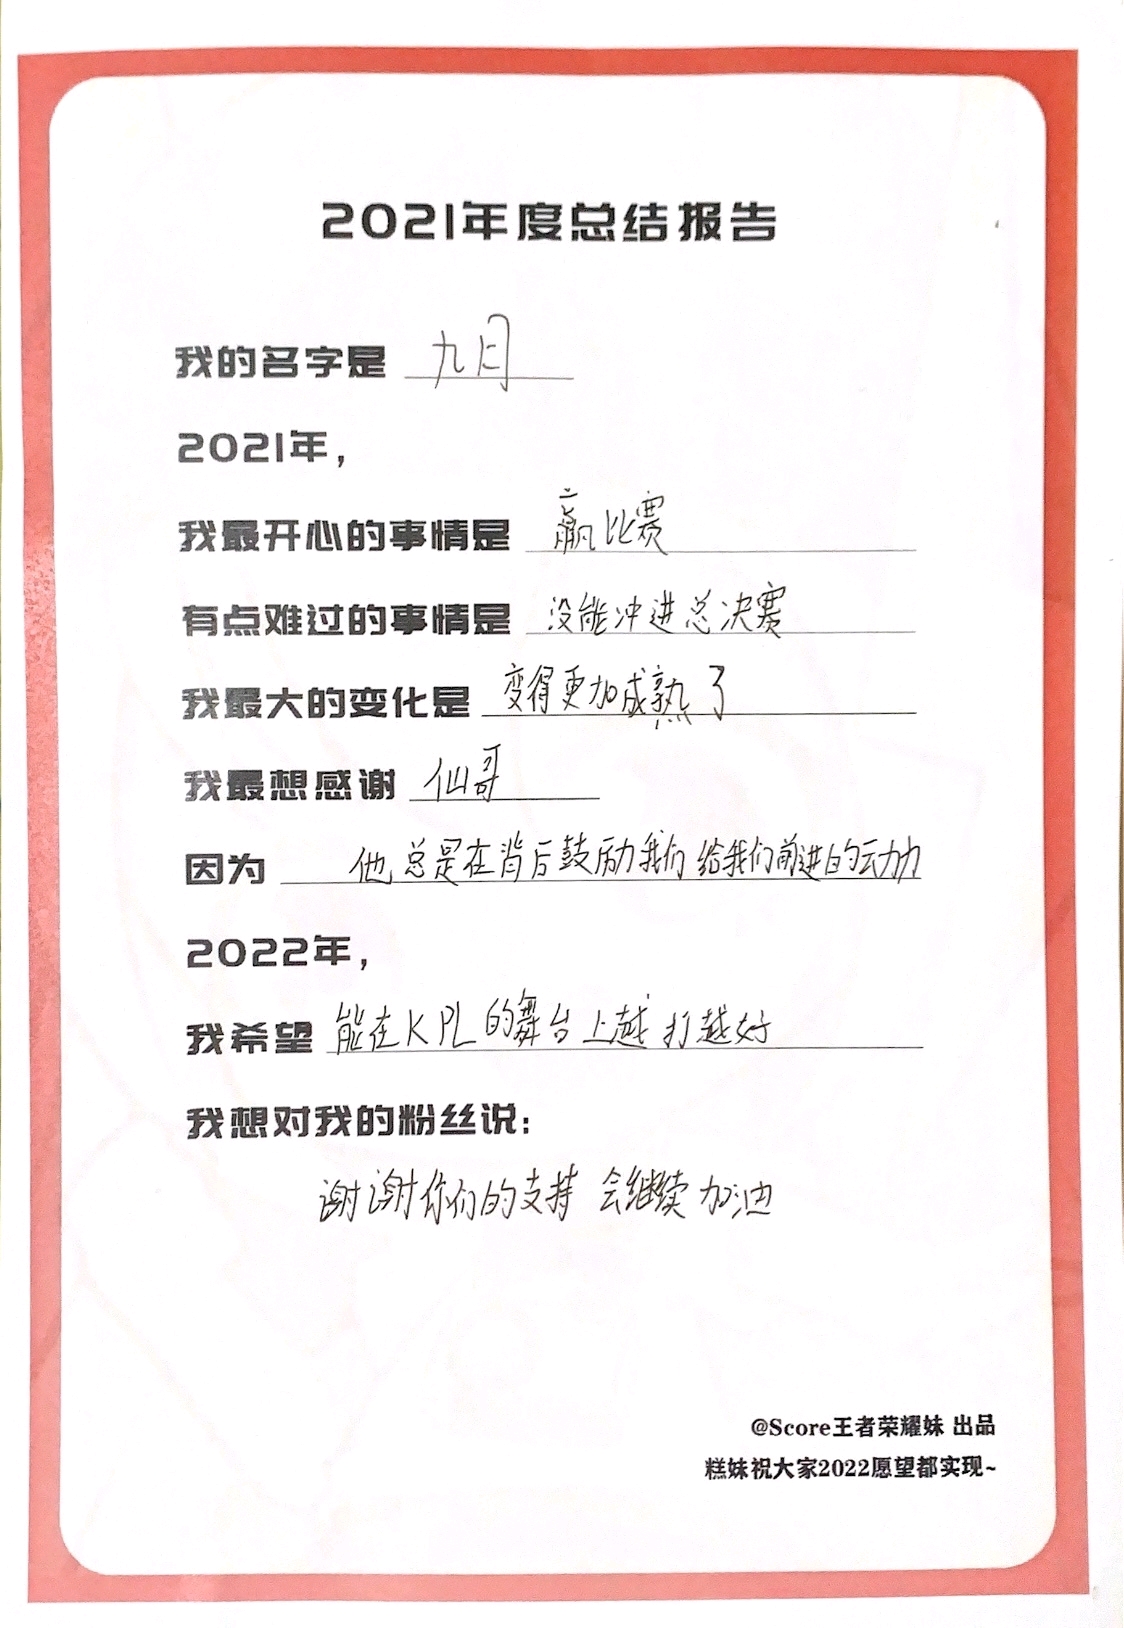 2021年度总结报告
我的名字是 九月
2021年，
我最开心的事情是 赢比赛
有点难过的事情是 没能冲进总决赛
我最大的变化是 变得更加成熟了
我最想感谢 仙哥
因为 他总是在背后鼓励我们 给我们前进的动力
2022年，
我希望 能在KPL的舞台上越打越好
我想对我的粉丝说：
谢谢你们的支持 会继续加油
@Score王者荣耀妹 出品
糕妹祝大家2022愿望都实现~